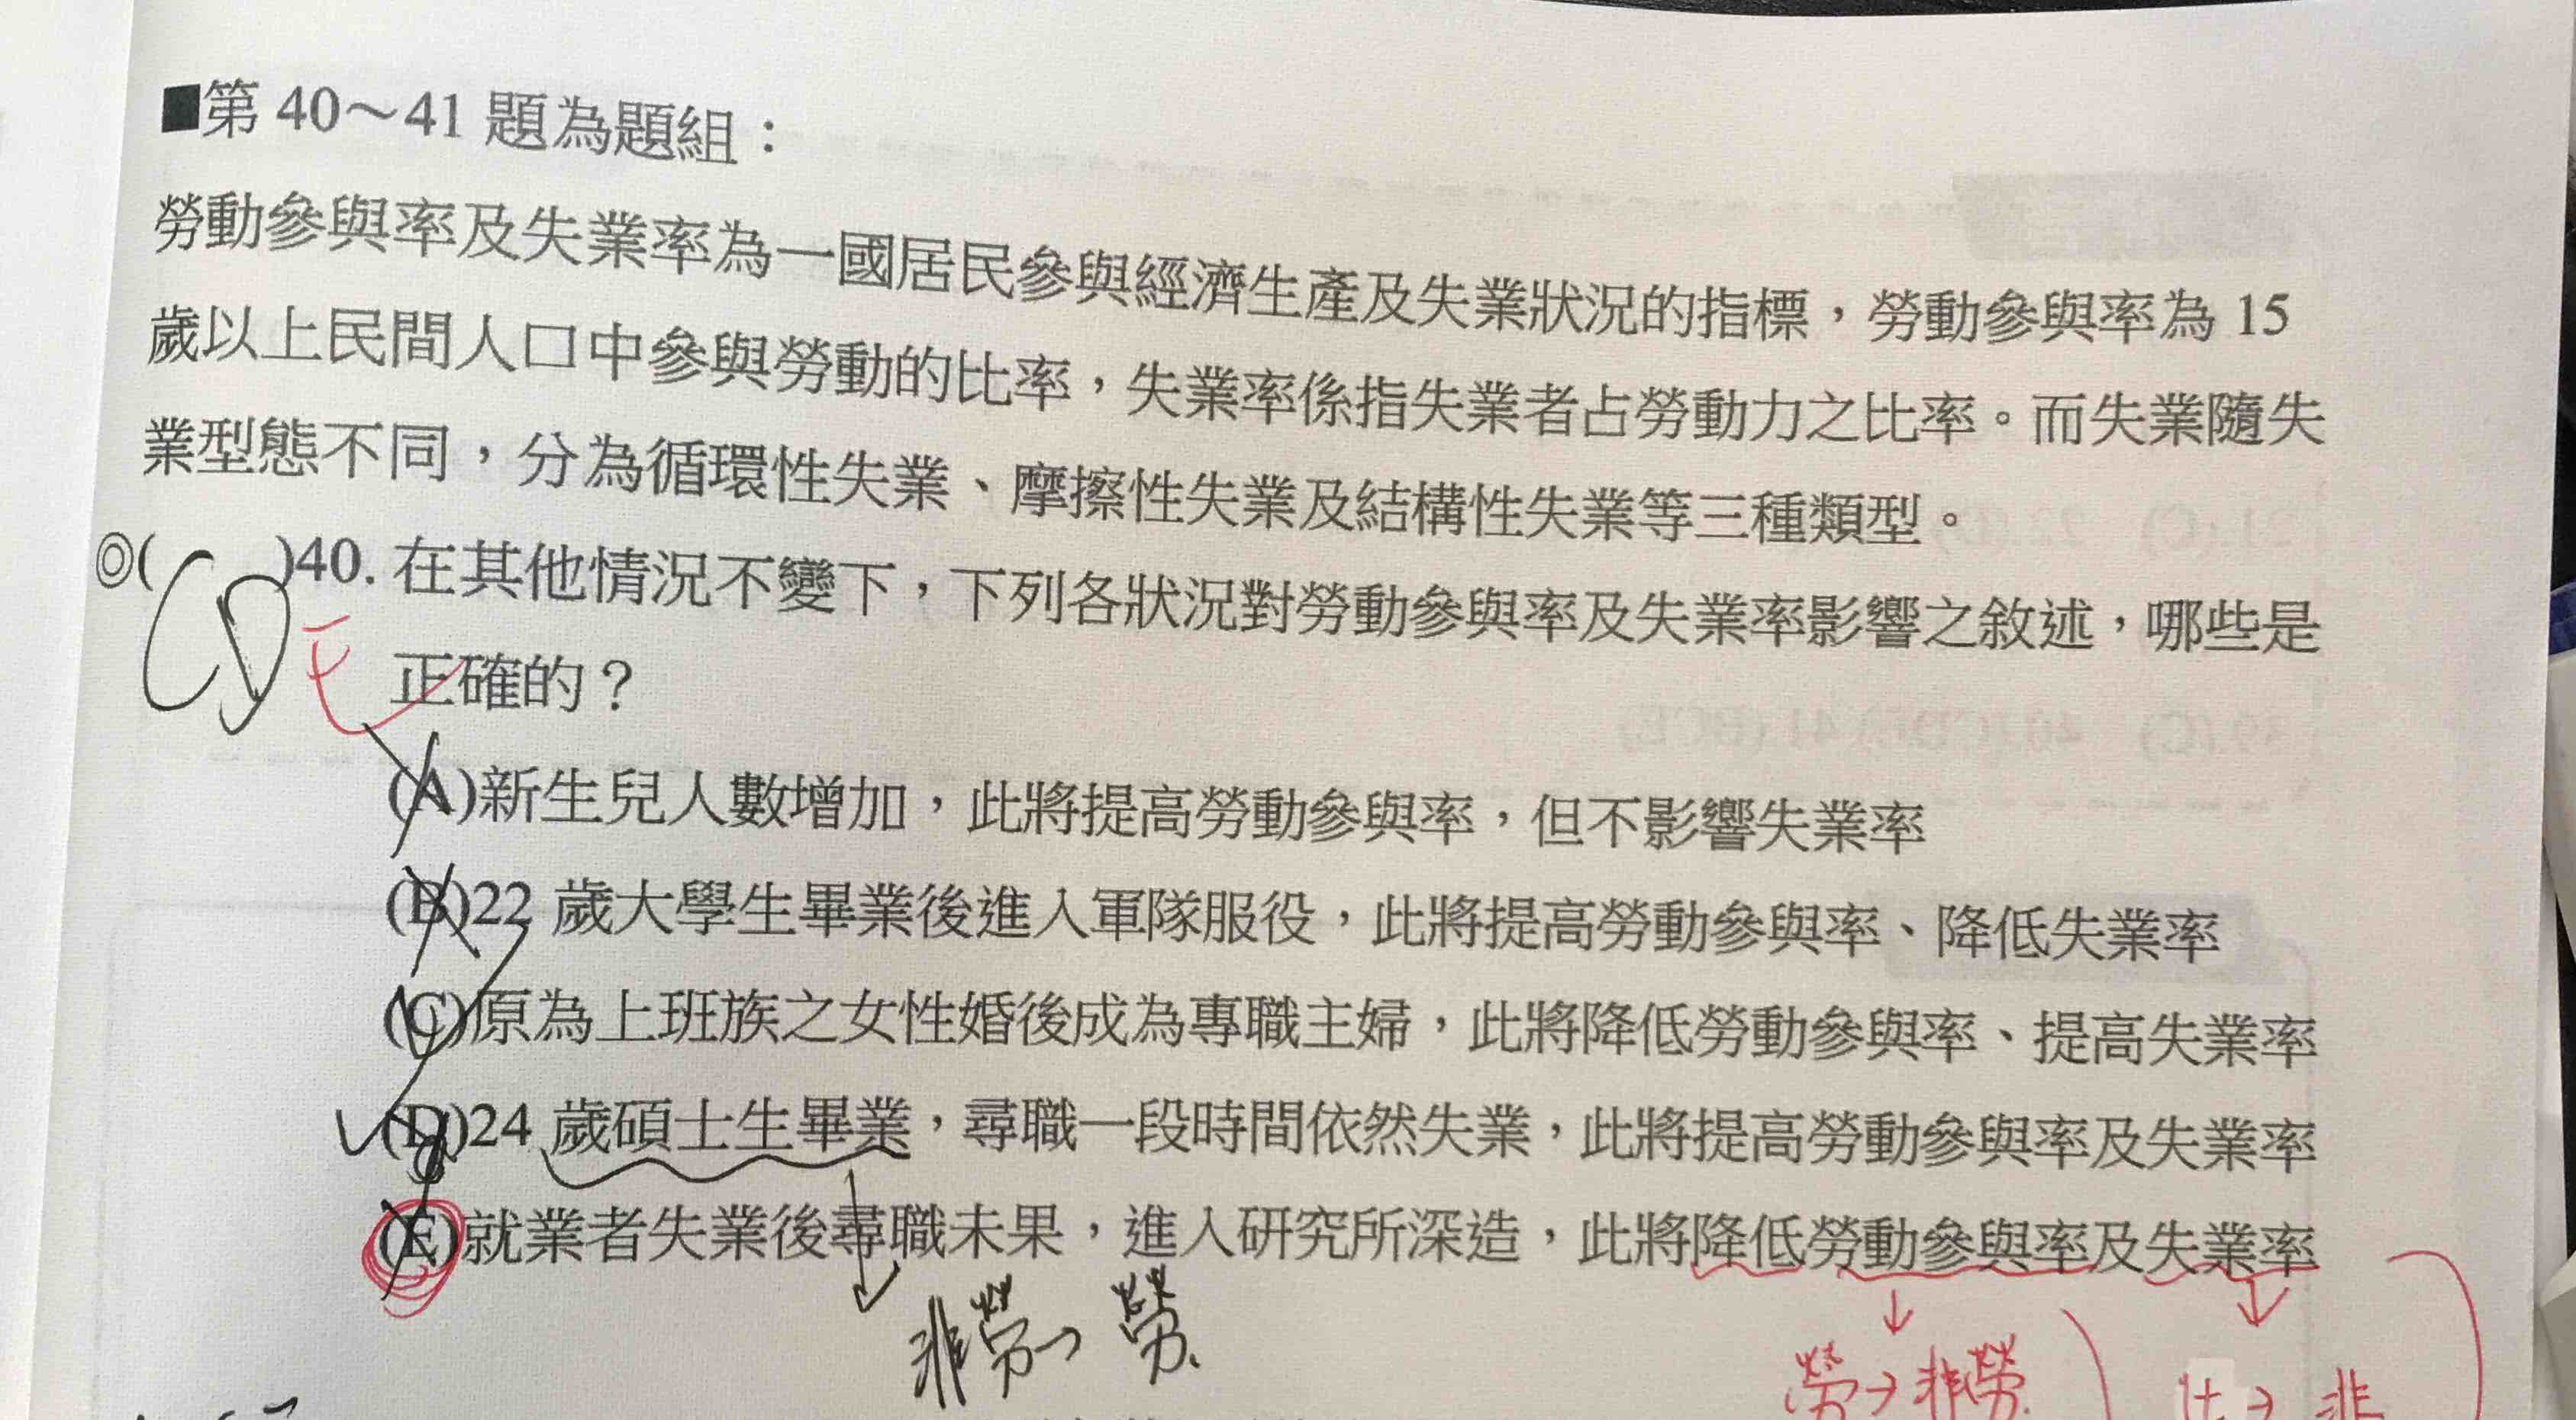 ■第 40～41 題為題組：
勞動參與率及失業率為一國居民參與經濟生產及失業狀況的指標，勞動參與率為 15
歲以上民間人口中參與勞動的比率，失業率係指失業者占勞動力之比率。而失業隨失
業型態不同，分為循環性失業、摩擦性失業及結構性失業等三種類型。
◎( CD )40. 在其他情況不變下，下列各狀況對勞動參與率及失業率影響之敘述，哪些是
E 正確的？
(A)新生兒人數增加，此將提高勞動參與率，但不影響失業率
(B)22 歲大學生畢業後進入軍隊服役，此將提高勞動參與率、降低失業率
(C)原為上班族之女性婚後成為專職主婦，此將降低勞動參與率、提高失業率
(D)24 歲碩士生畢業，尋職一段時間依然失業，此將提高勞動參與率及失業率
(E)就業者失業後尋職未果，進入研究所深造，此將降低勞動參與率及失業率
非勞→勞.
勞→非勞.